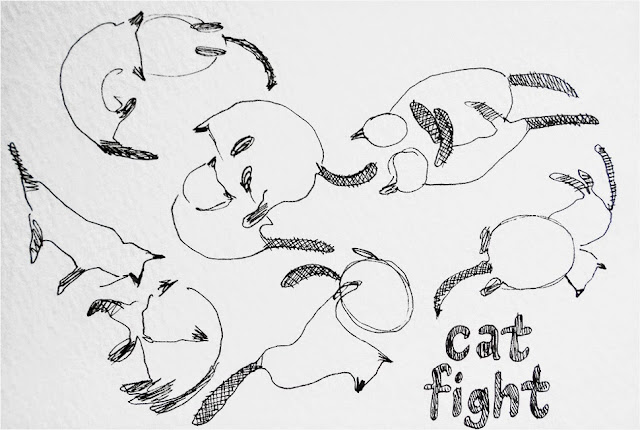 cat
fight